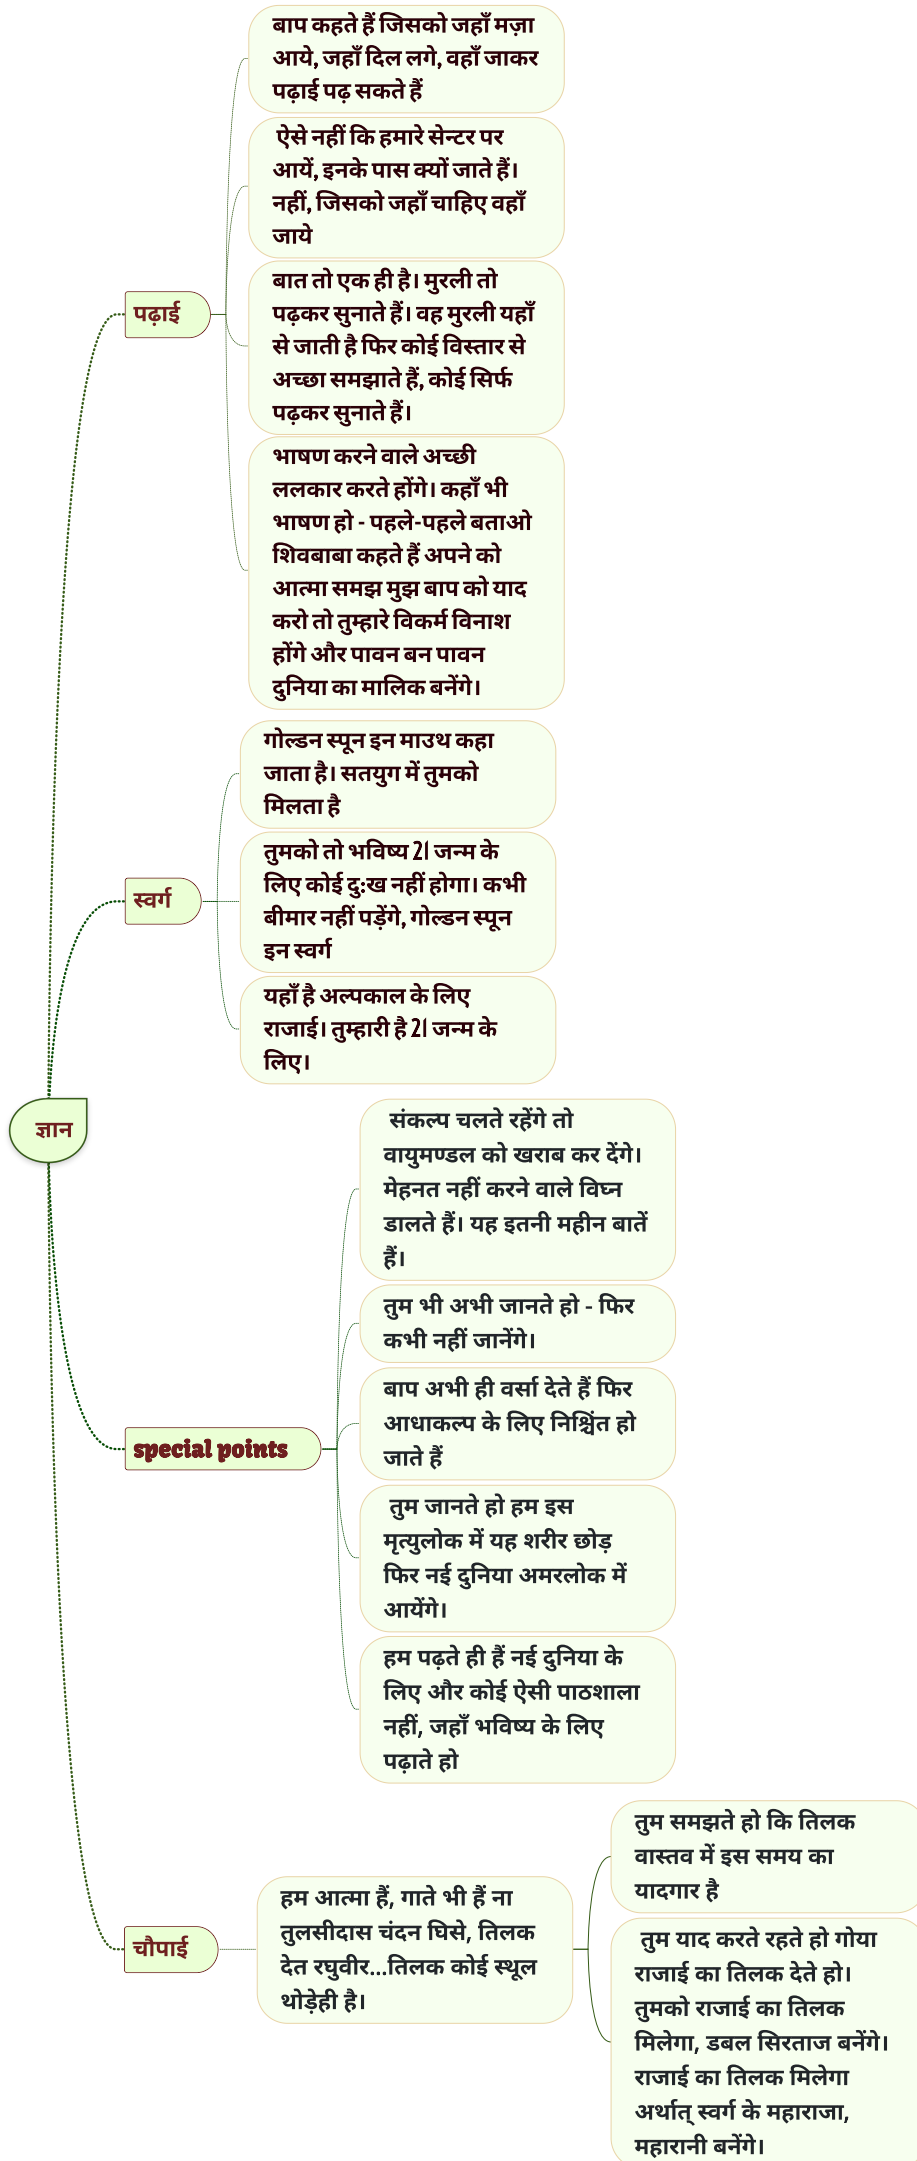 बाप कहते हैं जिसको जहाँ मज़ा
आये, जहाँ दिल लगे, वहाँ जाकर
पढ़ाई पढ़ सकते हैं
ऐसे नहीं कि हमारे सेन्टर पर
आयें, इनके पास क्यों जाते हैं।
नहीं, जिसको जहाँ चाहिए वहाँ
जाये
पढ़ाई
बात तो एक ही है। मुरली तो
पढ़कर सुनाते हैं। वह मुरली यहाँ
से जाती है फिर कोई विस्तार से
अच्छा समझाते हैं, कोई सिर्फ
पढ़कर सुनाते हैं।
भाषण करने वाले अच्छी
ललकार करते होंगे। कहाँ भी
भाषण हो - पहले-पहले बताओ
शिवबाबा कहते हैं अपने को
आत्मा समझ मुझ बाप को याद
करो तो तुम्हारे विकर्म विनाश
होंगे और पावन बन पावन
दुनिया का मालिक बनेंगे।
गोल्डन स्पून इन माउथ कहा
जाता है। सतयुग में तुमको
मिलता है
स्वर्ग
तुमको तो भविष्य 21 जन्म के
लिए कोई दु:ख नहीं होगा। कभी
बीमार नहीं पड़ेंगे, गोल्डन स्पून
इन स्वर्ग
यहाँ है अल्पकाल के लिए
राजाई। तुम्हारी है 21 जन्म के
लिए।
ज्ञान
संकल्प चलते रहेंगे तो
वायुमण्डल को खराब कर देंगे।
मेहनत नहीं करने वाले विघ्न
डालते हैं। यह इतनी महीन बातें
हैं।
तुम भी अभी जानते हो - फिर
कभी नहीं जानेंगे।
बाप अभी ही वर्सा देते हैं फिर
आधाकल्प के लिए निश्चिंत हो
जाते हैं
special points
तुम जानते हो हम इस
मृत्युलोक में यह शरीर छोड़
फिर नई दुनिया अमरलोक में
आयेंगे।
हम पढ़ते ही हैं नई दुनिया के
लिए और कोई ऐसी पाठशाला
नहीं, जहाँ भविष्य के लिए
पढ़ाते हो
चौपाई
हम आत्मा हैं, गाते भी हैं ना
तुलसीदास चंदन घिसे, तिलक
देत रघुवीर...तिलक कोई स्थूल
थोड़ेही है।
तुम समझते हो कि तिलक
वास्तव में इस समय का
यादगार है
तुम याद करते रहते हो गोया
राजाई का तिलक देते हो।
तुमको राजाई का तिलक
मिलेगा, डबल सिरताज बनेंगे।
राजाई का तिलक मिलेगा
अर्थात् स्वर्ग के महाराजा,
महारानी बनेंगे।